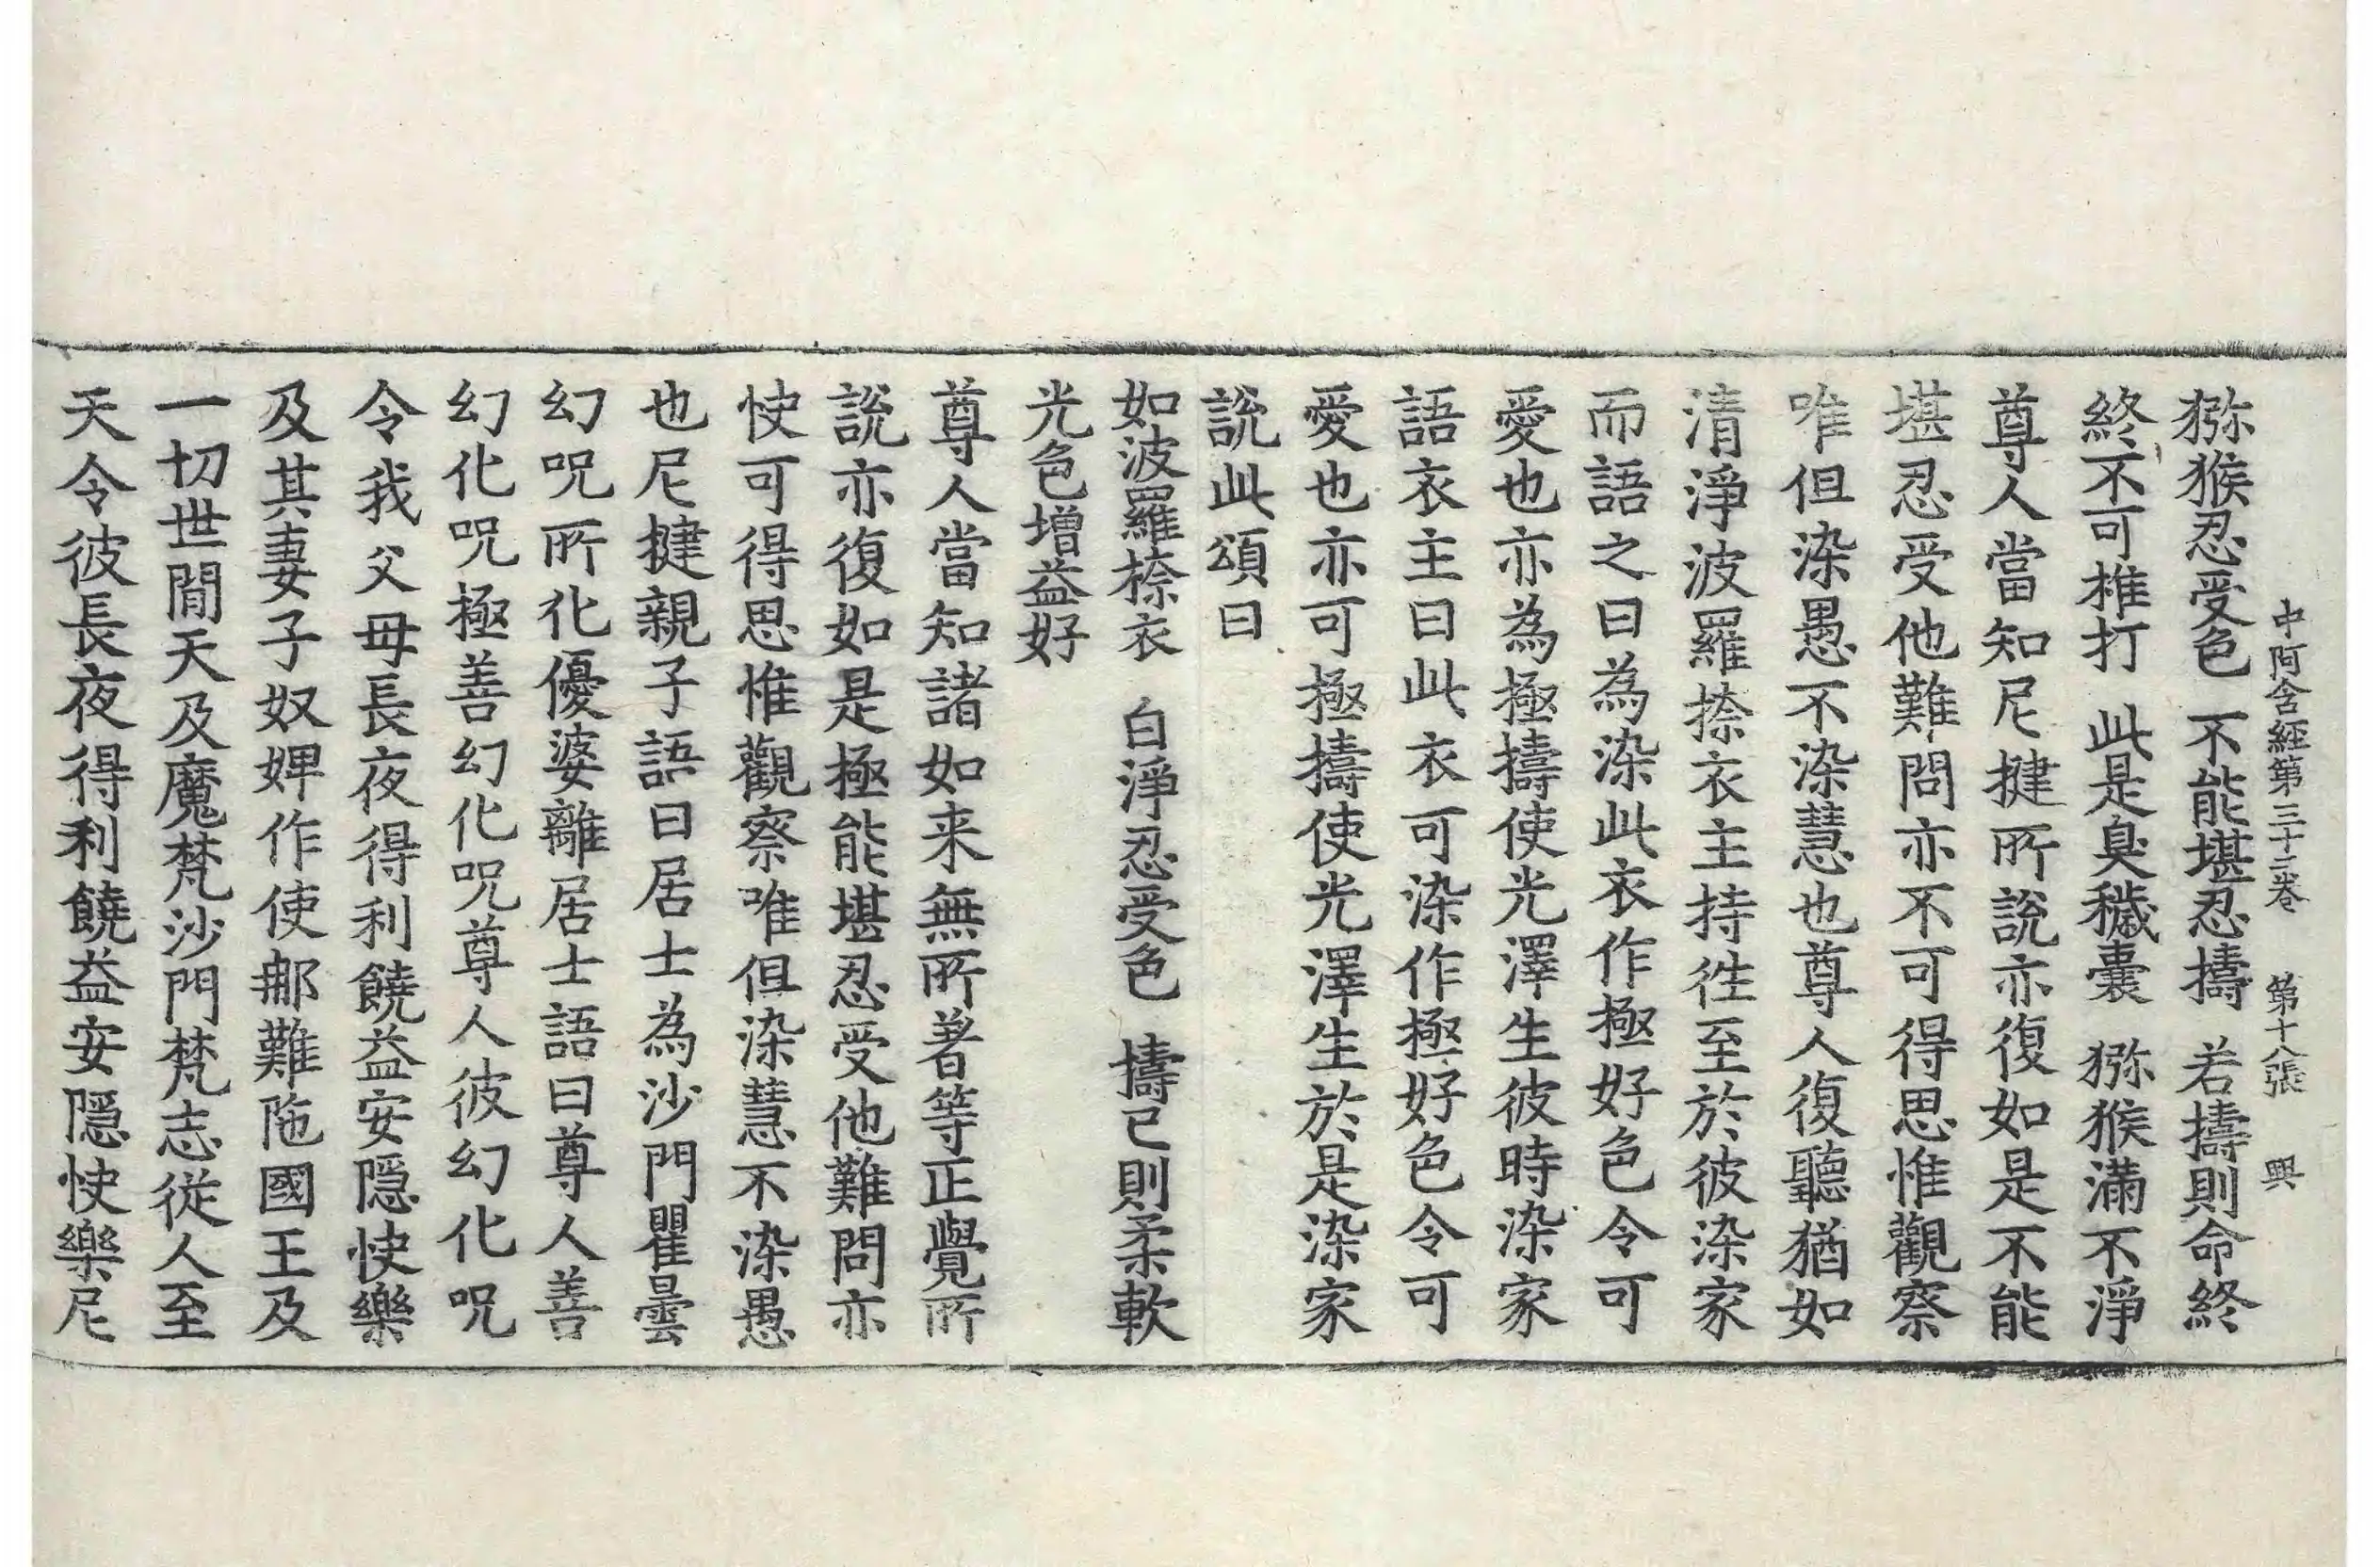 中阿含經第三十二卷　第十八張　興
猕猴忍受色　不能堪忍擣　若擣則命終
終不可椎打　此是臭穢囊　猕猴滿不淨
尊人當知尼揵所說亦復如是不能
堪忍受他難問亦不可得思惟觀察
唯但染愚不染慧也尊人復聽猶如
清淨波羅捺衣主持往至於彼染家
而語之曰為染此衣作極好色令可
愛也亦為極擣使光澤生彼時染家
語衣主曰此衣可染作極好色令可
愛也亦可極擣使光澤生於是染家
說此頌曰
如波羅捺衣　白淨忍受色　擣已則柔軟
光色增益好
尊人當知諸如来無所著等正覺所
說亦復如是極能堪忍受他難問亦
快可得思惟觀察唯但染慧不染愚
也尼揵親子語曰居士為沙門瞿曇
幻呪所化優婆離居士語曰尊人善
幻化呪極善幻化呪尊人彼幻化呪
令我父母長夜得利饒益安隱快樂
及其妻子奴婢作使那難陁國王及
一切世閒天及魔梵沙門梵志從人至
天令彼長夜得利饒益安隱快樂尼